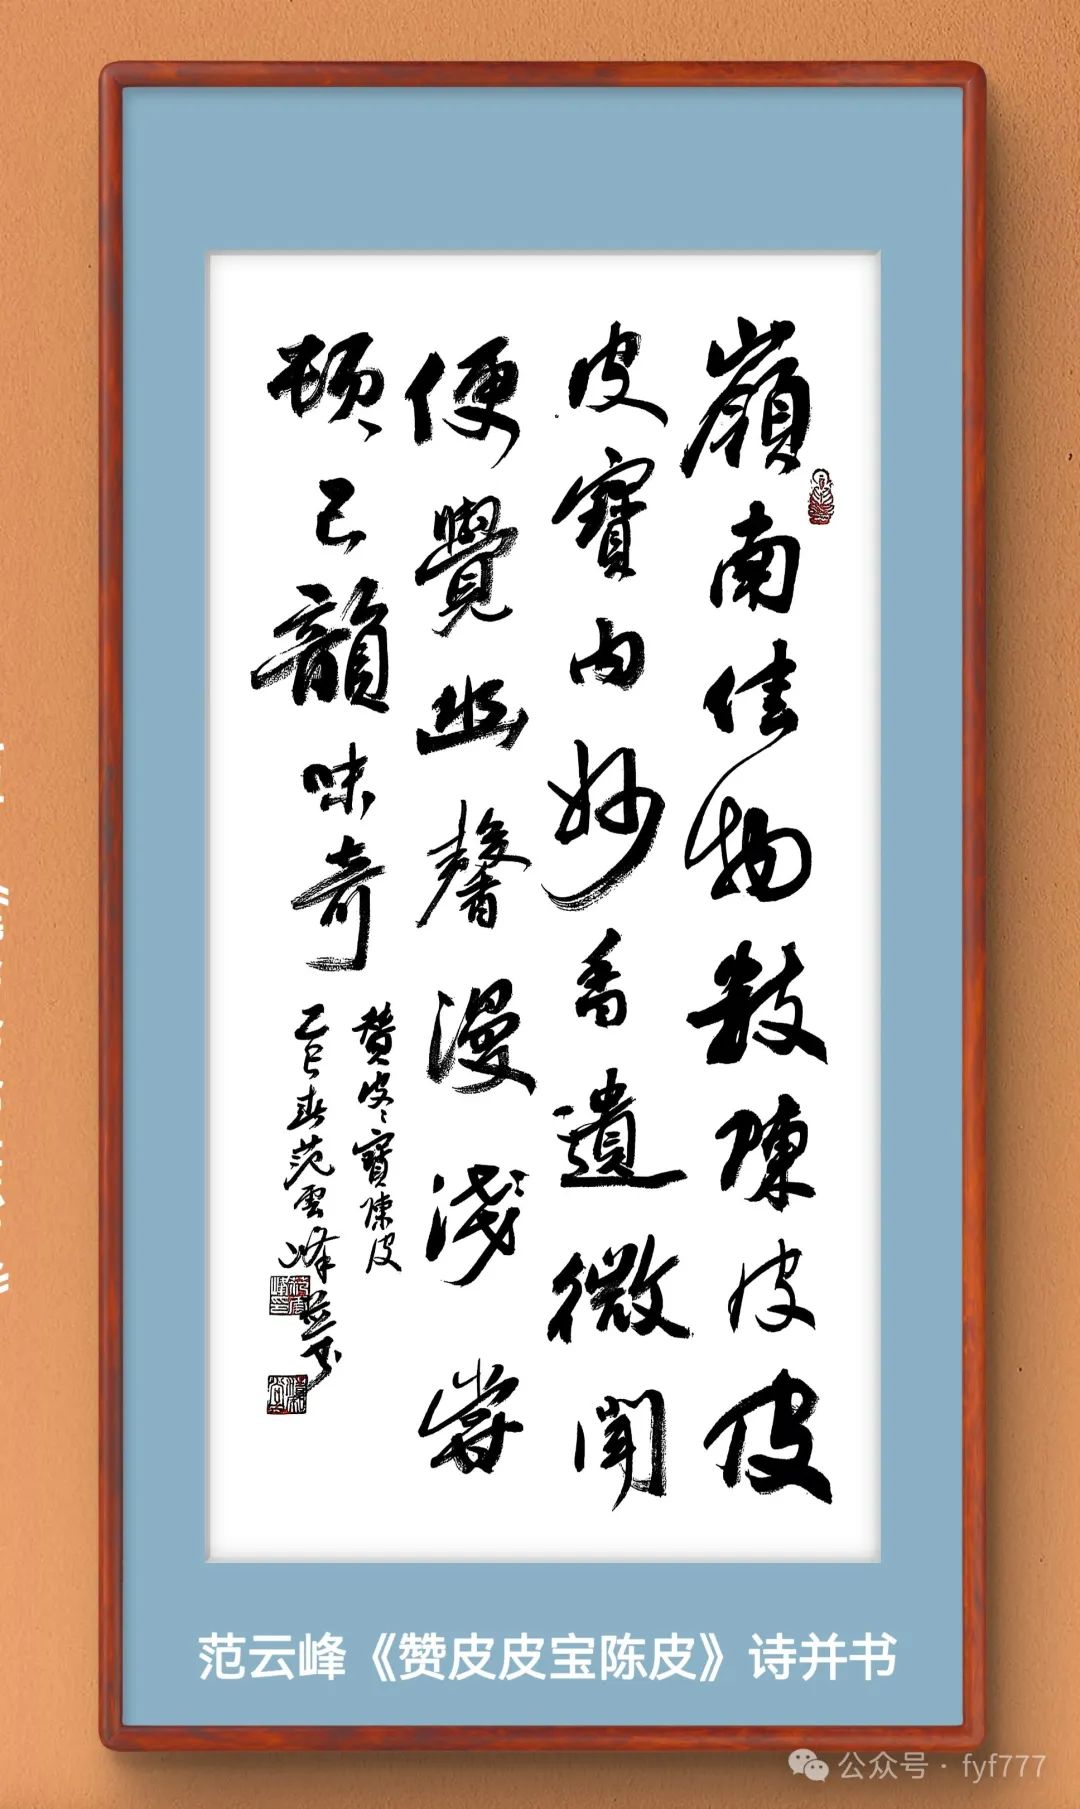 嶺南佳物數陳皮皮
皮寶内妙香遺微聞
便覺幽馨漫淺嘗
頓已韻味奇
贊皮々寶陳皮
乙巳春范雲峰并書
范云峰《赞皮皮宝陈皮》诗并书
公众号·fyf777